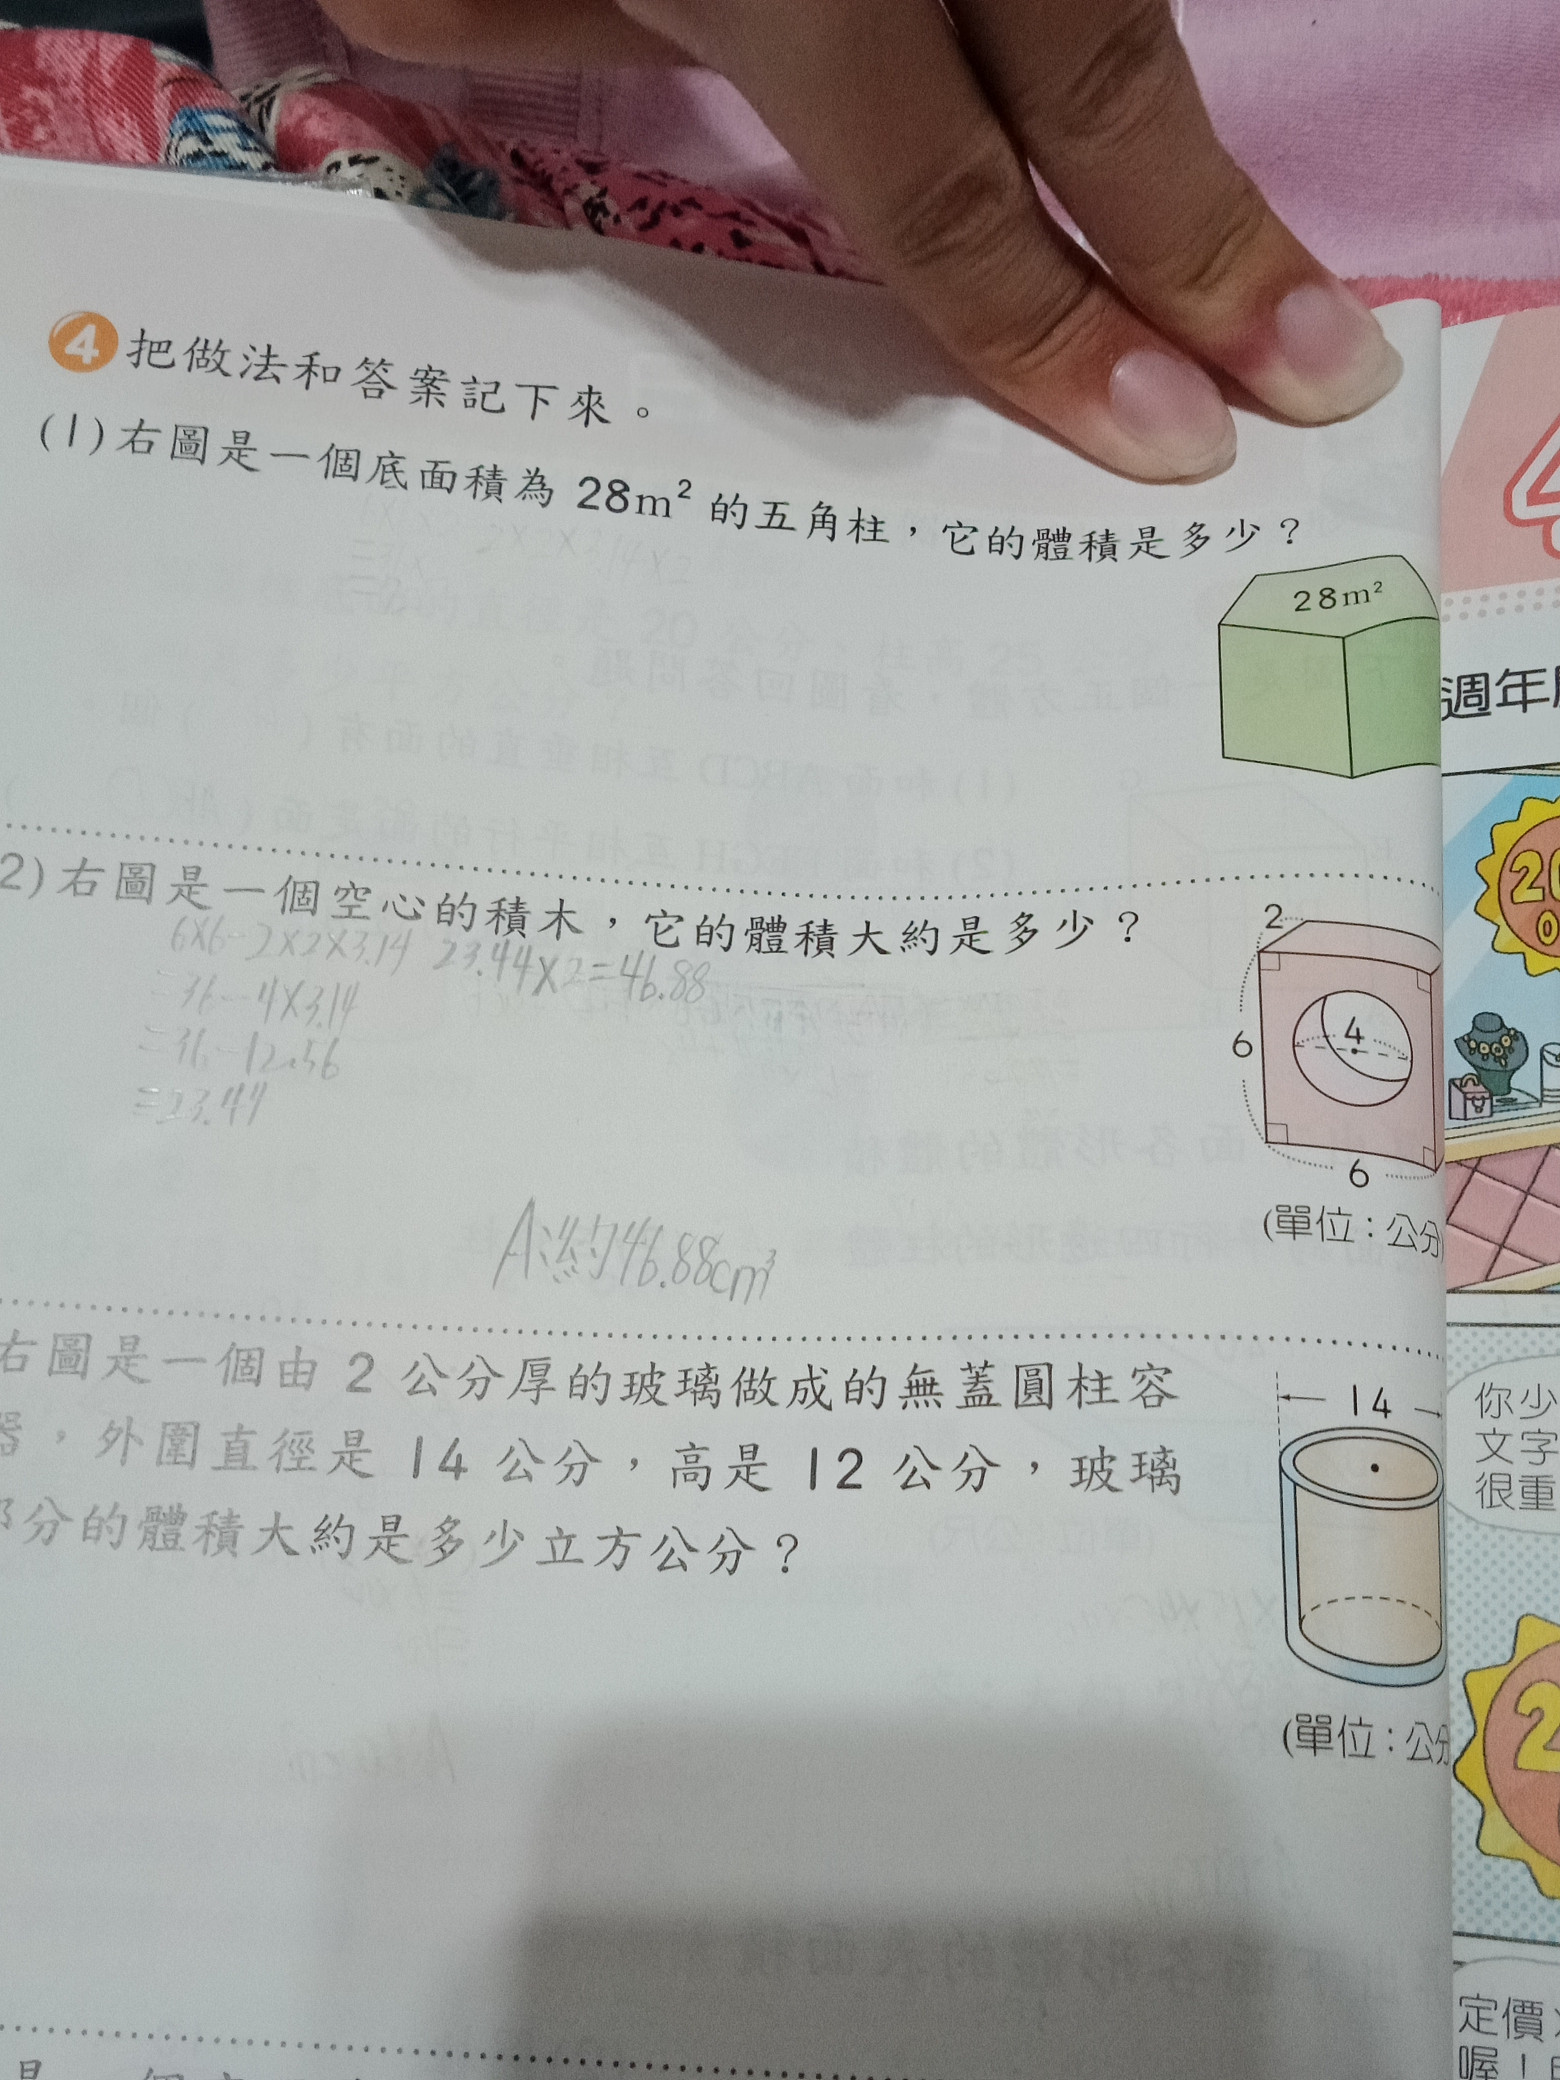 4 把做法和答案記下來。
(1)右圖是一個底面積為 28m² 的五角柱，它的體積是多少？
28m²
2)右圖是一個空心的積木，它的體積大約是多少？
6×6-2×2×3.14 23.44×2=46.88
=36-4×3.14
=36-12.56
=23.44
A:約46.88cm³
2
4
6
6
(單位：公分
右圖是一個由 2 公分厚的玻璃做成的無蓋圓柱容
器，外圍直徑是 14 公分，高是 12 公分，玻璃
部分的體積大約是多少立方公分？
14
(單位：公分
4
週年
你少
文字
很重
定價
喔！